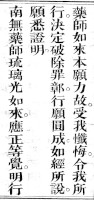 藥師如來本願力故受我懺悔令我所
行決定破除罪鄣行願圓成如經所說
願悉證明
南無藥師琉璃光如來應正等覺明行